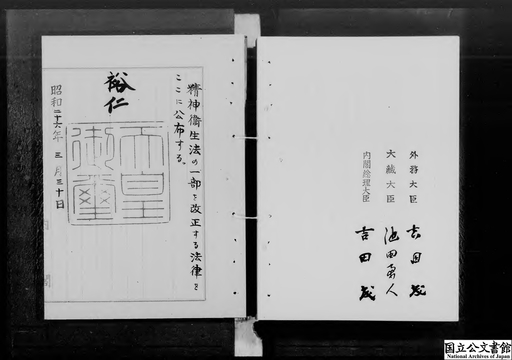 精神衛生法の一部を改正する法律を
ここに公布する。
裕仁
天皇
御璽
昭和二十六年三月三十日
内閣
外務大臣 吉田茂
大蔵大臣 池田勇人
内閣総理大臣 吉田茂
国立公文書館
National Archives of Japan